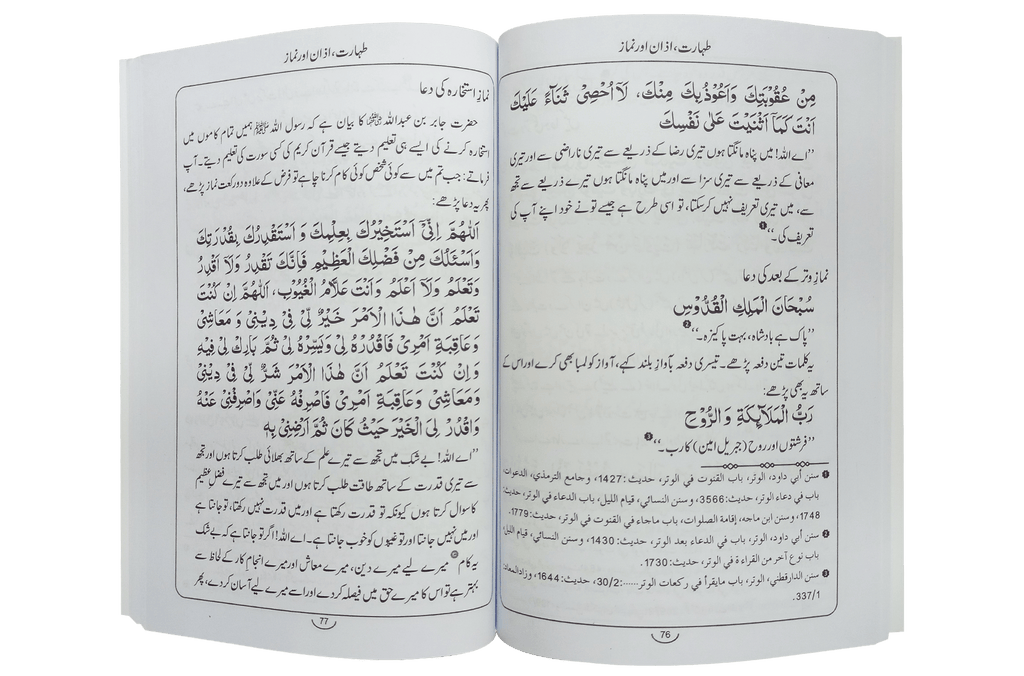 طہارت، اذان اور نماز
مِنْ عُقُوْبَتِكَ وَاَعُوْذُبِكَ مِنْكَ، لَآ اُحْصِیْ ثَنَآءً عَلَيْكَ
اَنْتَ كَمَآ اَثْنَيْتَ عَلٰى نَفْسِكَ
’’اے اللہ! میں پناہ مانگتا ہوں تیری رضا کے ذریعے سے تیری ناراضی سے اور تیری
معافی کے ذریعے سے تیری سزا سے اور میں پناہ مانگتا ہوں تیرے ذریعے سے تجھ
سے، میں تیری تعریف نہیں کر سکتا، تو اسی طرح ہے جیسے تو نے خود اپنے آپ کی
تعریف کی۔‘‘❶
نماز وتر کے بعد کی دعا
سُبْحَانَ الْمَلِكِ الْقُدُّوْسِ
’’پاک ہے بادشاہ، بہت پاکیزہ۔‘‘❷
یہ کلمات تین دفعہ پڑھے۔ تیسری دفعہ بآواز بلند کہے، آواز کو لمبا بھی کرے اور اس کے
ساتھ یہ بھی پڑھے:
رَبُّ الْمَلَآئِكَةِ وَالرُّوْحِ
’’فرشتوں اور روح (جبریل امین) کا رب۔‘‘❸
❶ سنن أبي داود، الوتر، باب القنوت في الوتر، حديث:1427، وجامع الترمذي، الدعوات،
باب في دعاء الوتر، حديث:3566، وسنن النسائي، قيام الليل، باب الدعاء في الوتر، حديث:
1748، وسنن ابن ماجه، إقامة الصلوات، باب ماجاء في القنوت في الوتر، حديث:1779.
❷ سنن أبي داود، الوتر، باب في الدعاء بعد الوتر، حديث:1430، وسنن النسائي، قيام الليل
باب نوع آخر من القراءة في الوتر، حديث:1730.
❸ سنن الدارقطني، الوتر، باب مايقرأ في ركعات الوتر.....:30/2، حديث:1644، وزادالمعاد:
337/1.
76
طہارت، اذان اور نماز
نماز استخارہ کی دعا
حضرت جابر بن عبداللہ ؓ کا بیان ہے کہ رسول اللہ ﷺ ہمیں تمام کاموں میں
استخارہ کرنے کی ایسے ہی تعلیم دیتے جیسے قرآن کریم کی کسی سورت کی تعلیم دیتے۔ آپ
فرماتے: جب تم میں سے کوئی شخص کوئی کام کرنا چاہے تو فرض کے علاوہ دو رکعت نماز پڑھے،
پھر یہ دعا پڑھے:
اَللّٰهُمَّ اِنِّیْ اَسْتَخِيْرُكَ بِعِلْمِكَ وَ اَسْتَقْدِرُكَ بِقُدْرَتِكَ
وَاَسْئَلُكَ مِنْ فَضْلِكَ الْعَظِيْمِ فَاِنَّكَ تَقْدِرُ وَلَآ اَقْدِرُ
وَتَعْلَمُ وَلَآ اَعْلَمُ وَاَنْتَ عَلَّامُ الْغُيُوْبِ، اَللّٰهُمَّ اِنْ كُنْتَ
تَعْلَمُ اَنَّ هٰذَا الْاَمْرَ خَيْرٌ لِّیْ فِیْ دِيْنِیْ وَ مَعَاشِیْ
وَعَاقِبَةِ اَمْرِیْ فَاقْدُرْهُ لِیْ وَيَسِّرْهُ لِیْ ثُمَّ بَارِكْ لِیْ فِيْهِ
وَاِنْ كُنْتَ تَعْلَمُ اَنَّ هٰذَا الْاَمْرَ شَرٌّ لِّیْ فِیْ دِيْنِیْ
وَمَعَاشِیْ وَعَاقِبَةِ اَمْرِیْ فَاصْرِفْهُ عَنِّیْ وَاصْرِفْنِیْ عَنْهُ
وَاقْدُرْ لِیَ الْخَيْرَ حَيْثُ كَانَ ثُمَّ اَرْضِنِیْ بِهٖ
’’اے اللہ! بے شک میں تجھ سے تیرے علم کے ساتھ بھلائی طلب کرتا ہوں اور تجھ
سے تیری قدرت کے ساتھ طاقت طلب کرتا ہوں اور میں تجھ سے تیرے فضل عظیم
کا سوال کرتا ہوں کیونکہ تو قدرت رکھتا ہے اور میں قدرت نہیں رکھتا، تو جانتا ہے
اور میں نہیں جانتا اور تو غیبوں کو خوب جانتا ہے۔ اے اللہ! اگر تو جانتا ہے کہ بے شک
یہ کام میرے لیے میرے دین، میرے معاش اور میرے انجام کار کے لحاظ سے
بہتر ہے تو اس کا میرے حق میں فیصلہ کردے اور اسے میرے لیے آسان کردے، پھر
77